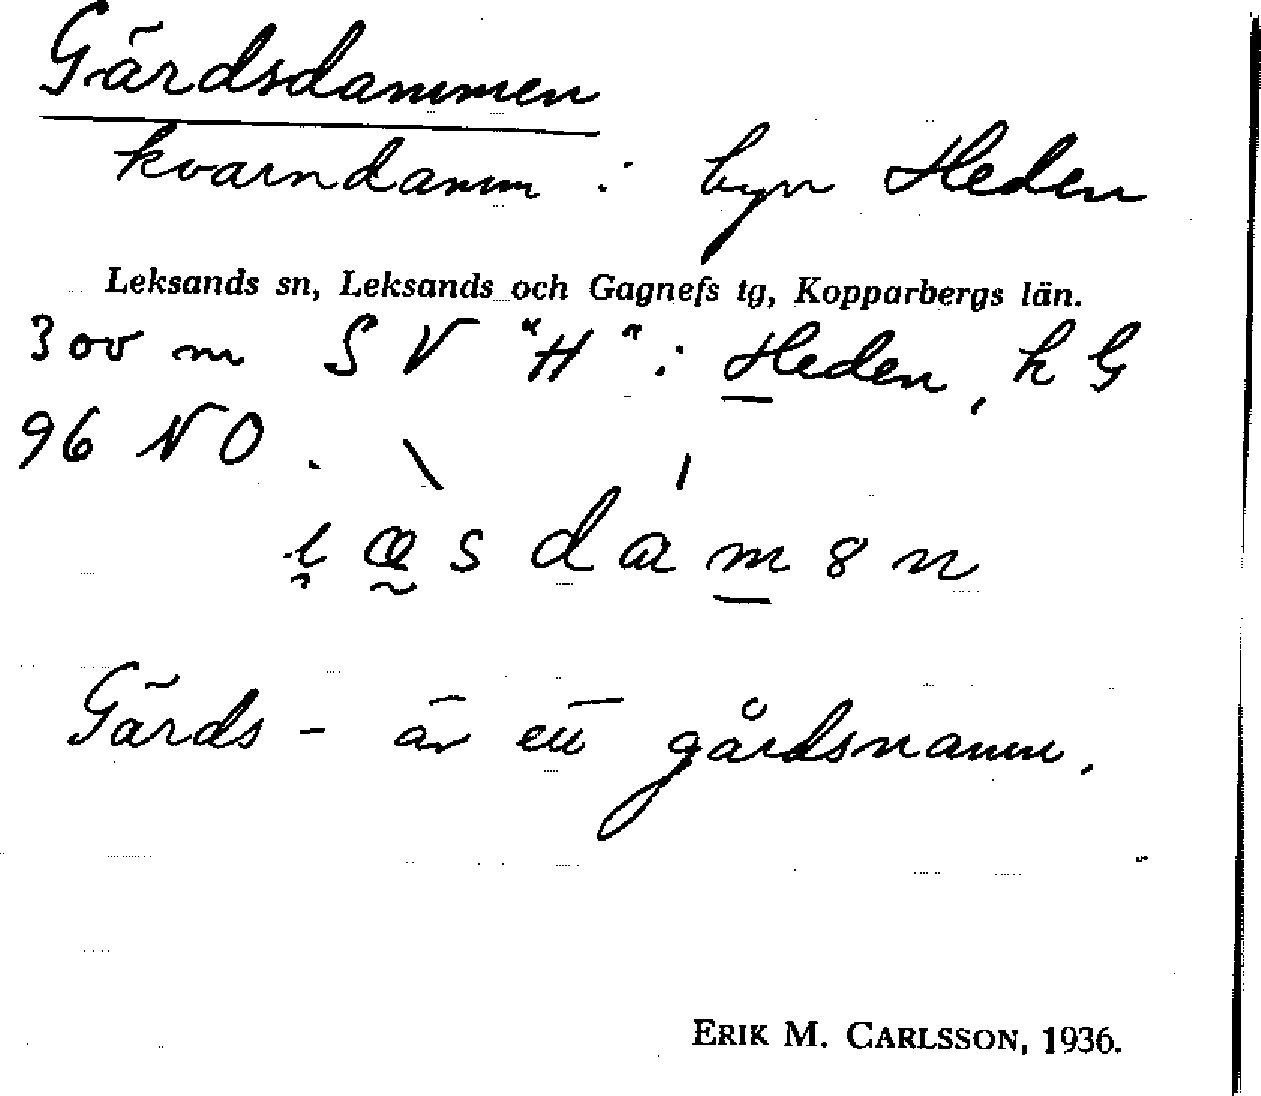 Gärdsdammen
kvarndamm i byn Heden
Leksands sn, Leksands och Gagnefs tg, Kopparbergs län.
300 m SV "H" i Heden, kG
96 NO.
sdamən
Gärds- är ett gårdsnamn.
ERIK M. CARLSSON, 1936.